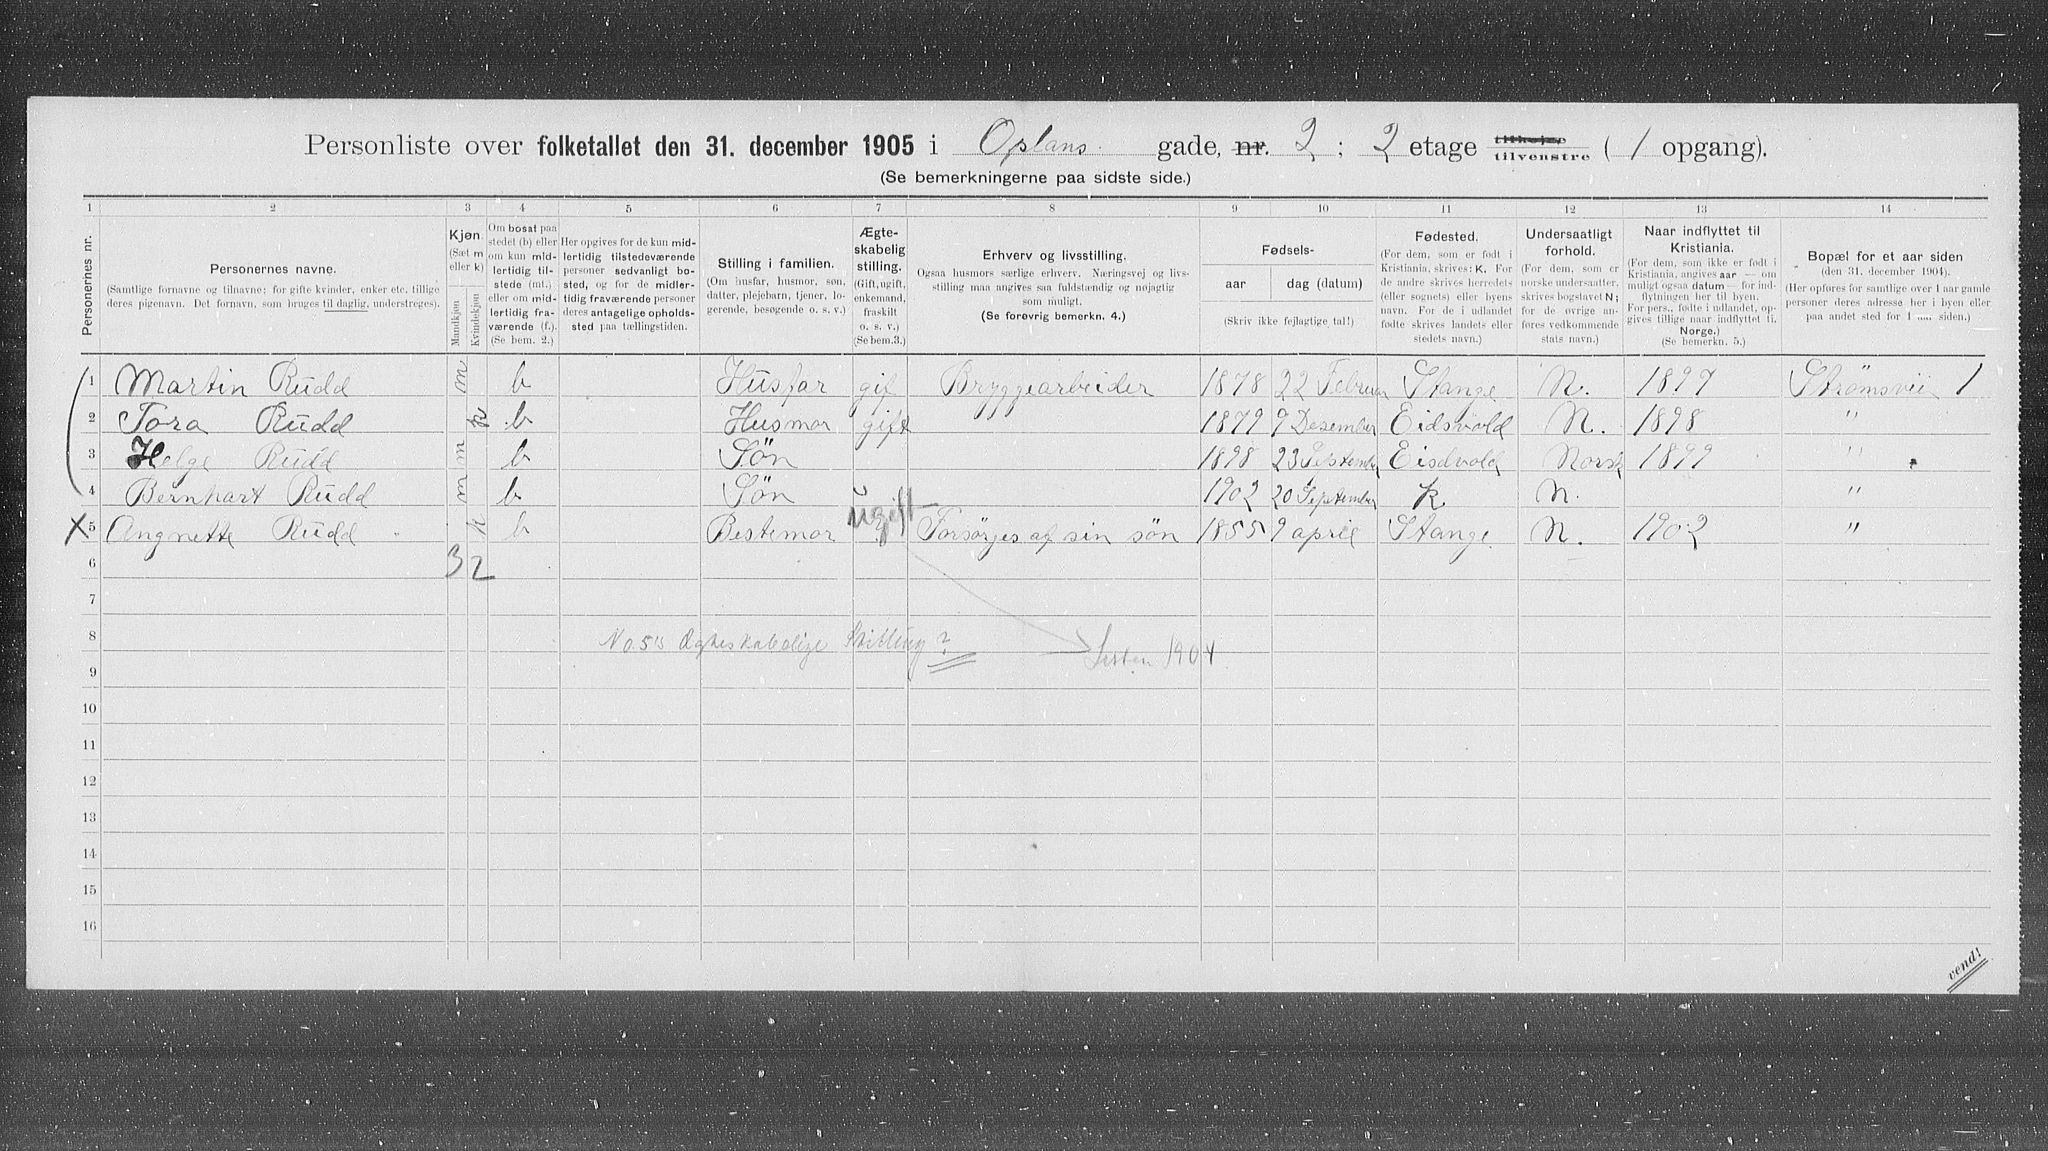 Personliste over folketallet den 31. december 1905 i Oplans. gade, nr. 2 ; 2 etage tilhøire tilvenstre ( 1 opgang).
(Se bemerkningerne paa sidste side.)
1 2 3 4 5 6 7 8 9 10 11 12 13 14
Personernes nr.
Personernes navne.
(Samtlige fornavne og tilnavne; for gifte kvinder, enker etc. tillige
deres pigenavn. Det fornavn, som bruges til daglig, understreges).
Kjøn.
(Sæt m
eller k)
Mandkjøn
Kvindekjøn
Om bosat paa
stedet (b) eller
om kun mid-
lertidig til-
stede (mt.)
eller om mid-
lertidig fra-
værende (f.).
(Se bem. 2.)
Her opgives for de kun mid-
lertidig tilstedeværende
personer sedvanligt bo-
sted, og for de midler-
tidig fraværende personer
deres antagelige opholds-
sted paa tællingstiden.
Stilling i familien.
(Om husfar, husmor, søn,
datter, plejebarn, tjener, lo-
gerende, besøgende o. s. v.)
Ægte-
skabelig
stilling.
(Gift, ugift,
enkemand,
fraskilt
o. s. v.)
(Se bem.3.)
Erhverv og livsstilling.
Ogsaa husmors særlige erhverv. Næringsvej og livs-
stilling maa angives saa fuldstændig og nøjagtig
som muligt.
(Se forøvrig bemerkn. 4.)
Fødsels-
aar dag (datum)
(Skriv ikke fejlagtige tal!)
Fødested.
(For dem, som er født i
Kristiania, skrives: K. For
de andre skrives herredets
(eller sognets) eller byens
navn. For de i udlandet
fødte skrives landets eller
stedets navn.)
Undersaatligt
forhold.
(For dem, som er
norske undersaatter,
skrives bogstavet N;
for de øvrige an-
føres vedkommende
stats navn.)
Naar indflyttet til
Kristiania.
(For dem, som ikke er født i
Kristiania, angives aar — om
muligt ogsaa datum — for ind-
flytningen her til byen.
For pers., fødte i udlandet, op-
gives tillige naar indflyttet til
Norge.)
(Se bemerkn. 5.)
Bopæl for et aar siden
(den 31. december 1904).
(Her opføres for samtlige over 1 aar gamle
personer deres adresse her i byen eller
paa andet sted for 1 aar siden.)
1 Martin Rudd m b Husfar gif Bryggearbeider 1878 22 Februar Stange N. 1897 Strømsvei 1
2 Tora Rudd k b Husmor gift 1879 9 Desember Eidsvold N. 1898 "
3 Helge Rudd m b Søn 1898 23 September Eisdvold Norsk 1899 "
4 Bernhart Rudd m b Søn 1902 20 September k N. "
X 5 Angnette Rudd k b Bestemor ugift Forsørjes af sin søn 1855 9 april Stange N. 1902 "
6 3 2
7
8 No. 5's Ægteskabelige Stilling? Listen 1904
9
10
11
12
13
14
15
16
vend!